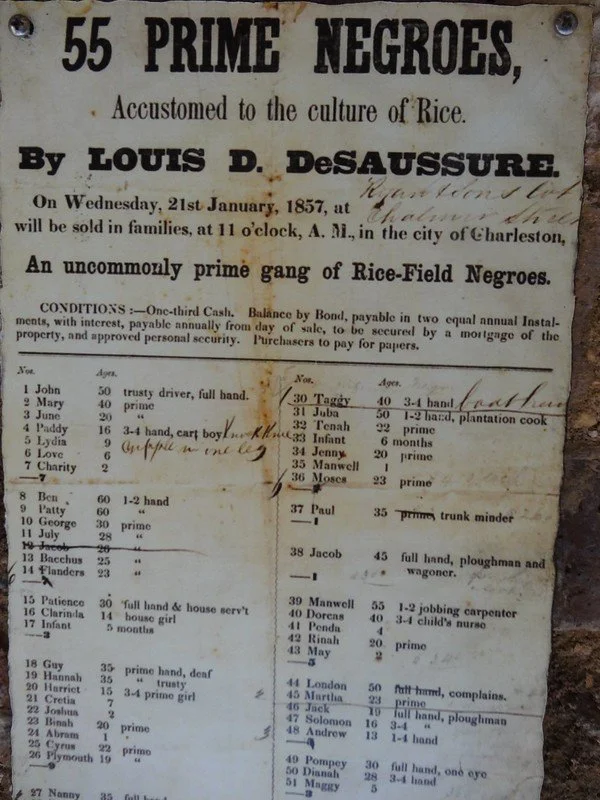 55 PRIME NEGROES,
Accustomed to the culture of Rice.
By LOUIS D. DeSAUSSURE.
On Wednesday, 21st January, 1857, at
will be sold in families, at 11 o'clock, A. M., in the city of Charleston,
An uncommonly prime gang of Rice-Field Negroes.
CONDITIONS :—One-third Cash. Balance by Bond, payable in two equal annual Instal-
ments, with interest, payable annually from day of sale, to be secured by a mortgage of the
property, and approved personal security. Purchasers to pay for papers.
Nos. Ages.
1 John 50 trusty driver, full hand.
2 Mary 40 prime
3 June 20 “
4 Paddy 16 3-4 hand, cart boy Knock Knee
5 Lydia 9 cripple in one leg
6 Love 6
7 Charity 2
—7
8 Ben 60 1-2 hand
9 Patty 60 “
10 George 30 prime
11 July 28 “
12 Jacob 26 “
13 Bacchus 25 “
14 Flanders 23 “
15 Patience 30 full hand & house serv't
16 Clarinda 14 house girl
17 Infant 5 months
—3
18 Guy 35 prime hand, deaf
19 Hannah 35 “ trusty
20 Harriet 15 3-4 prime girl
21 Cretia 7
22 Joshua 2
23 Binah 20 prime
24 Abram 1
25 Cyrus 22 prime
26 Plymouth 19 “
—9
27 Nanny 35 full hand
Nos. Ages.
30 Taggy 40 3-4 hand
31 Juba 50 1-2 hand, plantation cook
32 Tenah 22 prime
33 Infant 6 months
34 Jenny 20 prime
35 Manwell 1
36 Moses 23 prime
37 Paul 35 prime, trunk minder
—1
38 Jacob 45 full hand, ploughman and
wagoner.
—1
39 Manwell 55 1-2 jobbing carpenter
40 Dorcas 40 3-4 child's nurse
41 Penda 4
42 Rinah 20 prime
43 May 2
—5
44 London 50 full hand, complains.
45 Martha 23 prime
46 Jack 19 full hand, ploughman
47 Solomon 16 3-4 “
48 Andrew 13 1-4 hand
49 Pompey 30 full hand, one eye
50 Dianah 28 3-4 hand
51 Maggy 5
—3